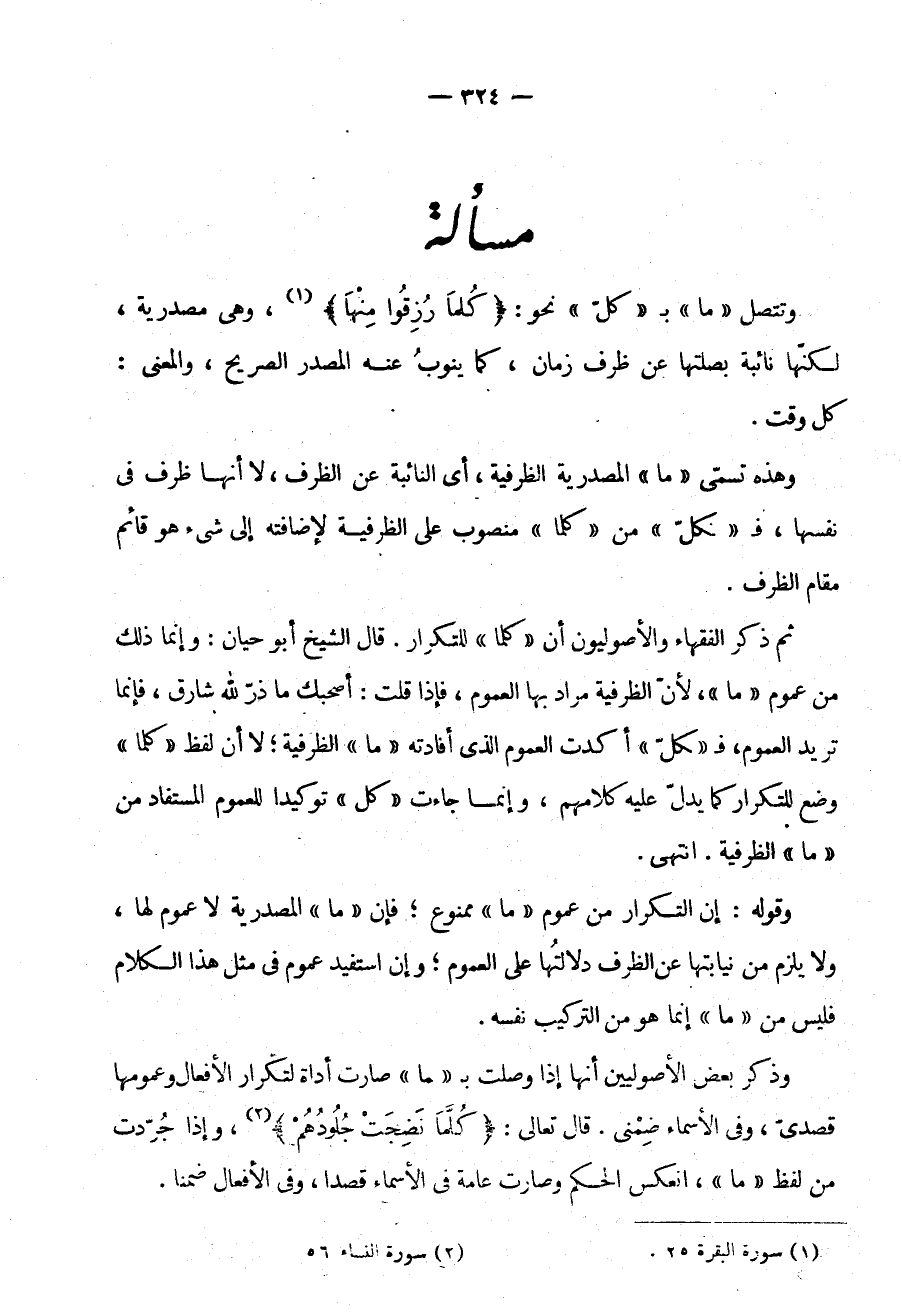 — ٣٢٤ —
مسألة
وتتصل « ما » بـ « كلّ » نحو : ﴿ كُلمَا رُزِقُوا مِنْهَا ﴾ (١) ، وهى مصدرية ،
لكنّها نائبة بصلتها عن ظرف زمان ، كما ينوبُ عنه المصدر الصريح ، والمعنى :
كل وقت .
وهذه تسمّى « ما » المصدرية الظرفية ، أى النائبة عن الظرف ، لا أنها ظرف فى
نفسها ، فـ « كلّ » من « كلما » منصوب على الظرفية لإضافته إلى شىء هو قائم
مقام الظرف .
ثم ذكر الفقهاء والأصوليون أن « كلما » للتكرار . قال الشيخ أبو حيان : وإنما ذلك
من عموم « ما » ، لأنّ الظرفية مراد بها العموم ، فإذا قلت : أصحبك ما ذرّ لله شارق ، فإنما
تريد العموم، فـ «كلّ » أكدت العموم الذى أفادته « ما » الظرفية ؛ لا أن لفظ « كلما »
وضع للتكرار كما يدلّ عليه كلامهم ، وإنما جاءت « كل » توكيدا للعموم المستفاد من
« ما » الظرفية . انتهى .
وقوله : إن التكرار من عموم « ما » ممنوع ؛ فإن « ما » المصدرية لا عموم لها ،
ولا يلزم من نيابتها عن الظرف دلالتُها على العموم ؛ وإن استفيد عموم فى مثل هذا الكلام
فليس من « ما » إنما هو من التركيب نفسه .
وذكر بعض الأصوليين أنها إذا وصلت بـ « ما » صارت أداة لتكرار الأفعال وعمومها
قصدىّ ، وفى الأسماء ضِمْنى . قال تعالى : ﴿ كُلَّمَا نَضِجَتْ جُلُودُهُمْ ﴾ (٢) ، وإذا جُرّدت
من لفظ « ما » ، انعكس الحكم وصارت عامة فى الأسماء قصدا ، وفى الأفعال ضمنا .
(١) سورة البقرة ٢٥ . (٢) سورة النساء ٥٦